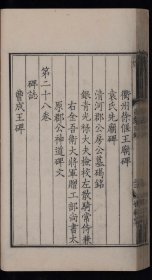 衢州徐偃王廟碑
袁氏先廟碑
清河郡公房公墓碣銘
銀青光祿大夫檢校左散騎常侍兼
右金吾衛大將軍贈工部尚書太
原郡公神道碑文
第二十八卷
碑誌
曹成王碑